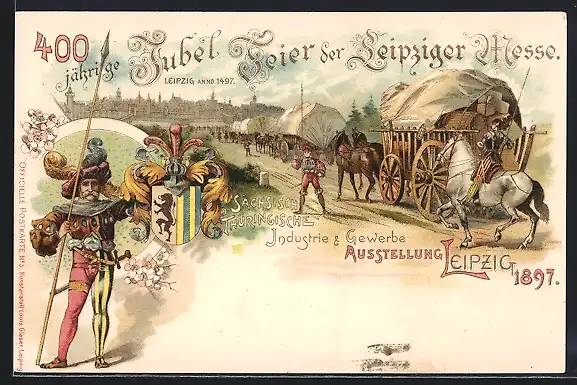 400
jährige
Jubel Feier der Leipziger Messe.
LEIPZIG ANNO 1497.
SÄCHSISCH
THÜRINGISCHE
Industrie & Gewerbe
AUSSTELLUNG LEIPZIG
1897.
OFFICIELLE POSTKARTE No 5. Kunstanstalt Louis Glaser, Leipzig